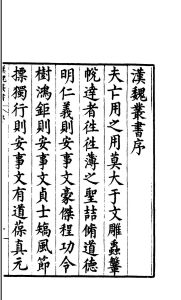 漢魏叢書序
夫亡用之用莫大于文雕蟲鞶
帨達者往往薄之聖喆脩道德
明仁義則安事文豪傑程功令
樹鴻鉅則安事文貞士矯風節
摽獨行則安事文有道葆真元